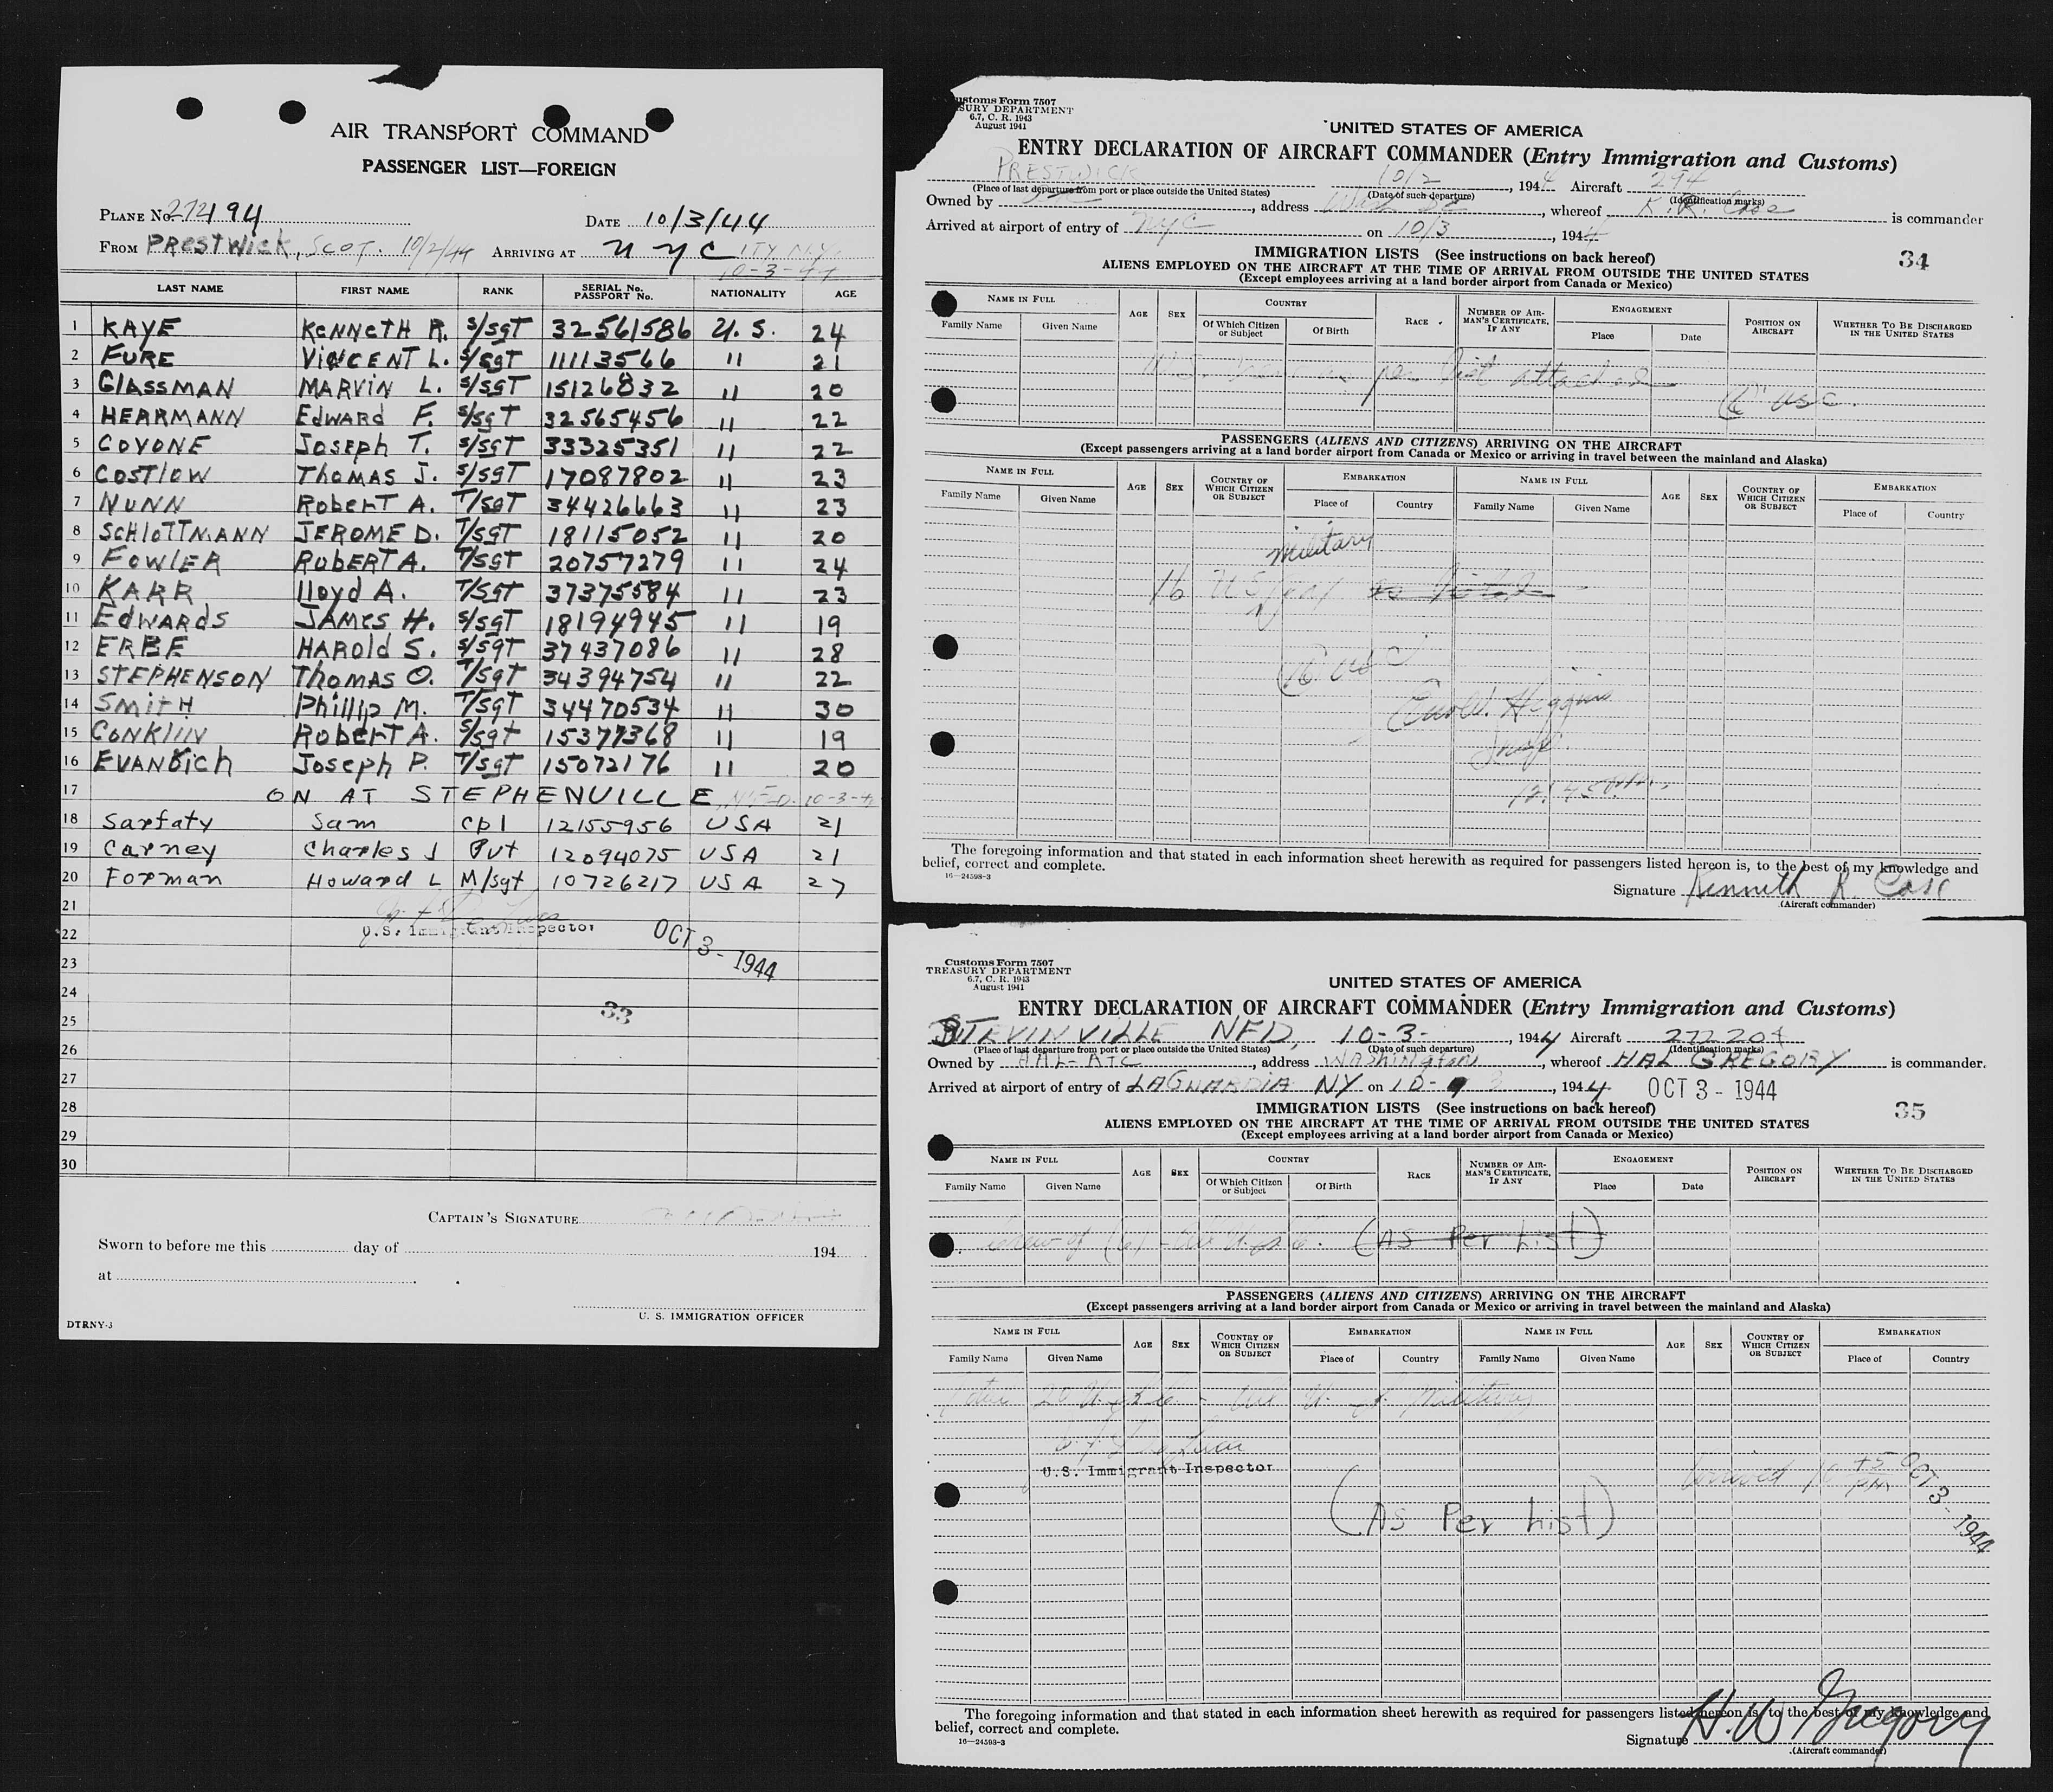 AIR TRANSPORT COMMAND
PASSENGER LIST—FOREIGN
PLANE No. 272194 DATE 10/3/44
FROM PRESTWICK, SCOT. 10/2/44 ARRIVING AT N Y C ITY N.Y.
10-3-44
LAST NAME FIRST NAME RANK SERIAL No. PASSPORT No. NATIONALITY AGE
1 KAYE KENNETH R. S/SGT 32561586 U.S. 24
2 FURE VINCENT L. S/SGT 11113566 " 21
3 GLASSMAN MARVIN L. S/SGT 15126832 " 20
4 HERRMANN EDWARD F. S/SGT 32565456 " 22
5 COVONE JOSEPH T. S/SGT 33325351 " 22
6 COSTLOW THOMAS J. S/SGT 17087802 " 23
7 NUNN ROBERT A. T/SGT 34426663 " 23
8 SCHLOTTMANN JEROME D. T/SGT 18115052 " 20
9 FOWLER ROBERT A. T/SGT 20757279 " 24
10 KARR Lloyd A. T/SGT 37375584 " 23
11 EDWARDS JAMES H. S/SGT 18194945 " 19
12 ERBE HAROLD S. S/SGT 37437086 " 28
13 STEPHENSON THOMAS O. T/SGT 34394754 " 22
14 SMITH Phillip M. T/SGT 34470534 " 30
15 CONKLIN ROBERT A. S/sgt 15377368 " 19
16 EVANDich Joseph P. T/SGT 15072176 " 20
17 ON AT STEPHENVILLE, NFD. 10-3-44
18 Sarfaty Sam cpl 12155956 USA 21
19 Carney Charles J Pvt 12094075 USA 21
20 Forman Howard L M/sgt 10726217 USA 27
21
22 U.S. Immigrant Inspector OCT 3 - 1944
23
24
33
25
26
27
28
29
30
CAPTAIN'S SIGNATURE
Sworn to before me this day of 194
at
U. S. IMMIGRATION OFFICER
DTRNY-3
ustoms Form 7507
SURY DEPARTMENT
6.7, C. R. 1943
August 1941
UNITED STATES OF AMERICA
ENTRY DECLARATION OF AIRCRAFT COMMANDER (Entry Immigration and Customs)
PRESTWICK 10/2, 1944 Aircraft 294
(Place of last departure from port or place outside the United States) (Date of such departure) (Identification marks)
Owned by ATC, address Wash DC, whereof K. R. Case is commander
Arrived at airport of entry of NYC on 10/3, 1944
IMMIGRATION LISTS (See instructions on back hereof) 34
ALIENS EMPLOYED ON THE AIRCRAFT AT THE TIME OF ARRIVAL FROM OUTSIDE THE UNITED STATES
(Except employees arriving at a land border airport from Canada or Mexico)
NAME IN FULL AGE SEX COUNTRY RACE NUMBER OF AIRMAN'S CERTIFICATE, IF ANY ENGAGEMENT POSITION ON AIRCRAFT WHETHER TO BE DISCHARGED IN THE UNITED STATES
Family Name Given Name Of Which Citizen or Subject Of Birth Place Date
per list attached
usc.
PASSENGERS (ALIENS AND CITIZENS) ARRIVING ON THE AIRCRAFT
(Except passengers arriving at a land border airport from Canada or Mexico or arriving in travel between the mainland and Alaska)
NAME IN FULL AGE SEX COUNTRY OF WHICH CITIZEN OR SUBJECT EMBARKATION NAME IN FULL AGE SEX COUNTRY OF WHICH CITIZEN OR SUBJECT EMBARKATION
Family Name Given Name Place of Country Family Name Given Name Place of Country
military
16 U S
16 usc
Higgins
Insp.
12:45 P.M.
The foregoing information and that stated in each information sheet herewith as required for passengers listed hereon is, to the best of my knowledge and
belief, correct and complete.
16—24598-3
Signature Kenneth R. Case
(Aircraft commander)
Customs Form 7507
TREASURY DEPARTMENT
6.7, C. R. 1943
August 1941
UNITED STATES OF AMERICA
ENTRY DECLARATION OF AIRCRAFT COMMANDER (Entry Immigration and Customs)
STEVINVILLE NFD, 10-3-, 1944 Aircraft 272204
(Place of last departure from port or place outside the United States) (Date of such departure) (Identification marks)
Owned by AAL-ATC, address WAShington, whereof HAL GREGORY is commander.
Arrived at airport of entry of LAGUARDIA NY on 10-3, 1944 OCT 3 - 1944
IMMIGRATION LISTS (See instructions on back hereof) 35
ALIENS EMPLOYED ON THE AIRCRAFT AT THE TIME OF ARRIVAL FROM OUTSIDE THE UNITED STATES
(Except employees arriving at a land border airport from Canada or Mexico)
NAME IN FULL AGE SEX COUNTRY RACE NUMBER OF AIRMAN'S CERTIFICATE, IF ANY ENGAGEMENT POSITION ON AIRCRAFT WHETHER TO BE DISCHARGED IN THE UNITED STATES
Family Name Given Name Of Which Citizen or Subject Of Birth Place Date
Crew of (6) - All U.S.C. (AS Per List)
PASSENGERS (ALIENS AND CITIZENS) ARRIVING ON THE AIRCRAFT
(Except passengers arriving at a land border airport from Canada or Mexico or arriving in travel between the mainland and Alaska)
NAME IN FULL AGE SEX COUNTRY OF WHICH CITIZEN OR SUBJECT EMBARKATION NAME IN FULL AGE SEX COUNTRY OF WHICH CITIZEN OR SUBJECT EMBARKATION
Family Name Given Name Place of Country Family Name Given Name Place of Country
Total 20 - All U. S. Military
U.S. Immigrant Inspector
Arrived OCT 3 - 1944
(AS Per List)
The foregoing information and that stated in each information sheet herewith as required for passengers listed hereon is, to the best of my knowledge and
belief, correct and complete.
16—24598-3
Signature H. W Gregory
(Aircraft commander)